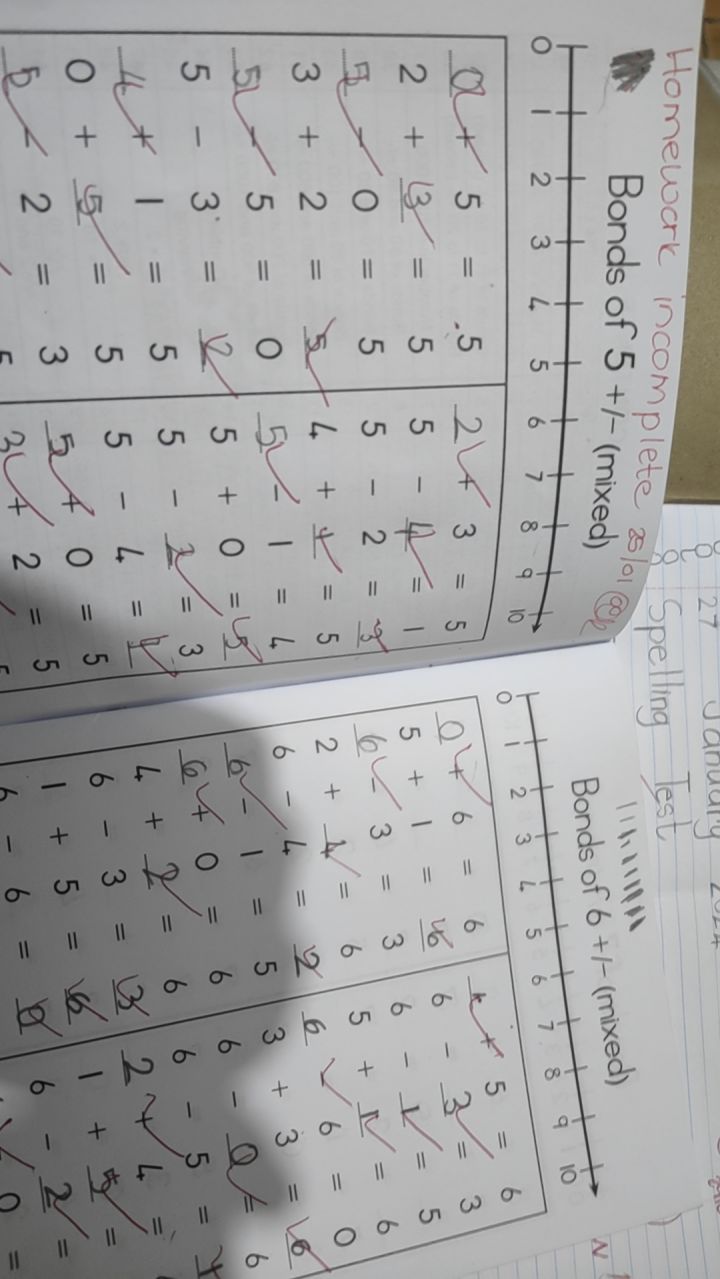 Homework incomplete 25/01
Bonds of 5 +/- (mixed)
0 1 2 3 4 5 6 7 8 9 10
0 + 5 = 5
2 + 3 = 5
5 - 0 = 5
3 + 2 = 5
5 - 5 = 0
5 - 3 = 2
4 + 1 = 5
0 + 5 = 5
5 - 2 = 3
2 + 3 = 5
5 - 4 = 1
5 - 2 = 3
4 + 1 = 5
5 - 1 = 4
5 + 0 = 5
5 - 2 = 3
5 - 4 = 1
5 + 0 = 5
3 + 2 = 5
27 January
Spelling Test
Bonds of 6 +/- (mixed)
0 1 2 3 4 5 6 7 8 9 10
0 + 6 = 6
5 + 1 = 6
6 - 3 = 3
2 + 4 = 6
6 - 4 = 2
6 - 1 = 5
6 + 0 = 6
4 + 2 = 6
6 - 3 = 3
1 + 5 = 6
6 - 6 = 0
1 + 5 = 6
6 - 3 = 3
6 - 1 = 5
5 + 1 = 6
6 - 6 = 0
3 + 3 = 6
6 - 0 = 6
6 - 5 = 1
2 + 4 =
1 + 5 =
6 - 2 =
0 =